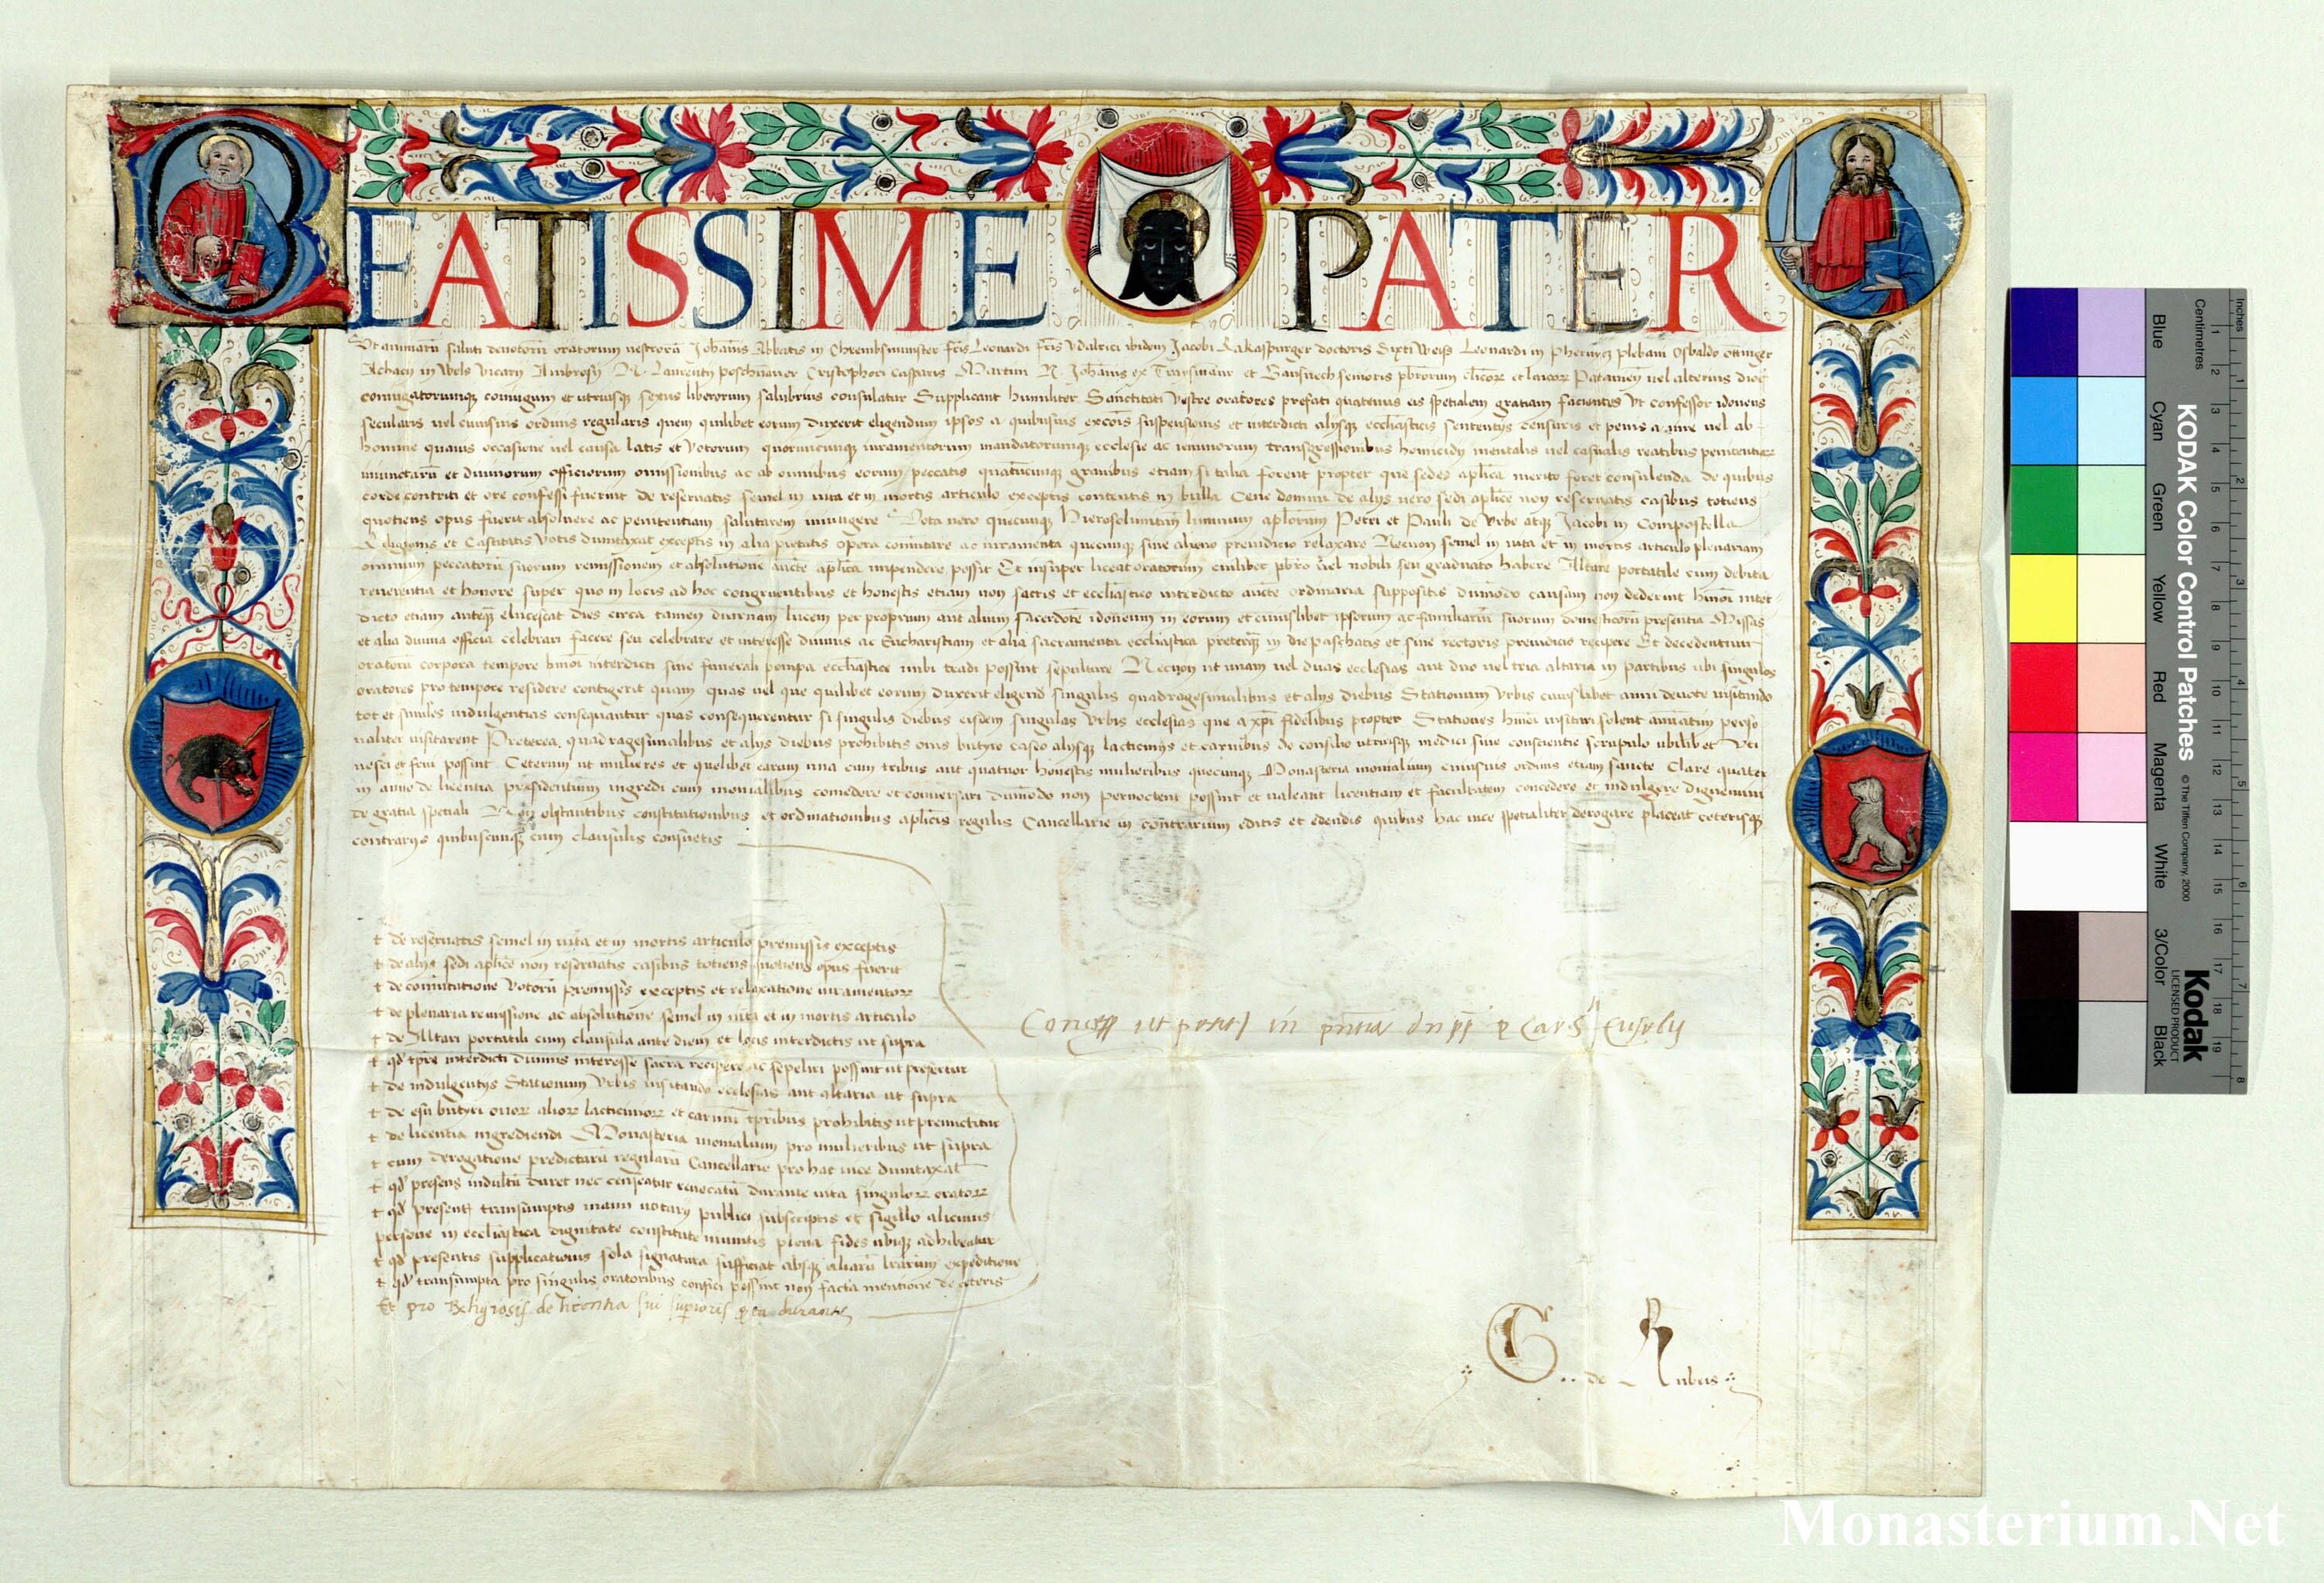 BEATISSIME PATER
Ut animarum saluti devotorum oratorum vestrorum Johannis Abbatis in Chrembsmunster fris Leonardi fris Udalrici ibidem Jacobi Rakaspurger doctoris Sixti Weiss Leonardi in plebani Osbaldo ottinger
in Wels vicarii Ambrosii N. Laurentii Cristophori Casparis Martini N. Johannis ex et senioris clicorum et laicorum Patavien vel alterius dioc
coniugatorumque coniugum et utriusque sexus liberorum salubrius consulatur Supplicant humiliter Sanctitati vestre oratores prefati quatenus eis spetialem gratiam facientes Ut confessor idoneus
secularis vel cuiusvis ordinis regularis quem quilibet eorum duxerit eligendum ipsos a quibusvis excois suspensionis et interdicti aliisque ecclesiasticis sententiis censuris et penis a iure vel ab
homine quavis occasione vel causa latis et votorum quorumcunque iuramentorum mandatorumque ecclesie ac ieiuniorum transgressionibus homicidii mentalis vel casualis reatibus penitentiarum
iniunctarum et divinorum officiorum omissionibus ac ab omnibus eorum peccatis quantumcunque gravibus etiam si talia forent propter que sedes aplica merito foret consulenda de quibus
corde contriti et ore confessi fuerint de reservatis semel in vita et in mortis articulo exceptis contentis in bulla Cene domini de aliis vero sedi aplice non reservatis casibus totiens
quotiens opus fuerit absolvere ac penitentiam salutarem iniungere Vota vero quecunque Hierosolimitan liminum aplorum Petri et Pauli de Urbe atque Jacobi in Compostella
Religionis et Castitatis votis dumtaxat exceptis in alia pietatis opera comutare ac iuramenta quecunque sine alieno preiudicio relaxare Necnon semel in vita et in mortis articulo plenariam
omnium peccatorum suorum remissionem et absolutionem aucte aplica impendere possit Et insuper liceat oratorum cuilibet pbro vel nobili seu graduato habere Altare portatile cum debita
reverentia et honore super quo in locis ad hoc congruentibus et honestis etiam non sacris et ecclesiastico interdicto aucte ordinaria suppositis dummodo causam non dederint hmoi inter-
dicto etiam antequam elucescat dies circa tamen diurnam lucem per proprium aut alium sacerdotem idoneum in eorum et cuiuslibet ipsorum ac familiarium suorum domesticorum presentia Missas
et alia divina officia celebrari facere seu celebrare et interesse divinis ac Eucharistiam et alia sacramenta ecclesiastica preterquam in die paschatis et sine rectoris preiudicio recipere Et decedentium
oratorum corpora tempore hmoi interdicti sine funerali pompa ecclesiastice inibi tradi possint sepulture Necnon ut unam vel duas ecclesias aut duo vel tria altaria in partibus ubi singulos
oratores pro tempore residere contigerit quam quas vel que quilibet eorum duxerit eligend singulis quadragesimalibus et aliis diebus Stationum Urbis cuiuslibet anni devote visitando
tot et similes indulgentias consequantur quas consequerentur si singulis diebus eisdem singulas Urbis ecclesias que a xpi fidelibus propter Stationes hmoi visitari solent annatim perso-
naliter visitarent Preterea quadragesimalibus et aliis diebus prohibitis ovis butyro caseo aliisque lacticiniis et carnibus de consilio utriusque medici sine conscientie scrupulo ubilibet uti
vesci et frui possint Ceterum ut mulieres et quelibet earum una cum tribus aut quatuor honestis mulieribus quecunque Monasteria monialium cuiusvis ordinis etiam sancte Clare quater
in anno de licentia presidentium ingredi cum monialibus comedere et conversari dummodo non pernoctent possint et valeant licentiam et facultatem concedere et indulgere dignemini
de gratia spetiali Non obstantibus constitutionibus et ordinationibus aplicis regulis Cancellarie in contrarium editis et edendis quibus hac vice spetialiter derogare placeat ceterisque
contrariis quibuscunque cum clausulis consuetis
+ de reservatis semel in vita et in mortis articulo premissis exceptis
+ de aliis sedi aplice non reservatis casibus totiens quotiens opus fuerit
+ de comutatione votorum premissis exceptis et relaxatione iuramentorum
+ de plenaria remissione ac absolutione semel in vita et in mortis articulo
+ de Altari portatili cum clausula ante diem et locis interdictis ut supra
+ qd tpre interdicti divinis interesse sacra recipere ac sepeliri possint ut prefertur
+ de indulgentiis Stationum Urbis visitando ecclesias aut altaria ut supra
+ de esu butyri ovorum aliorum lacticiniorum et carnium tpribus prohibitis ut premittitur
+ de licentia ingrediendi Monasteria monialium pro mulieribus ut supra
+ cum derogatione predictarum regularum Cancellarie pro hac vice dumtaxat
+ qd presens indultum duret nec censeatur revocatum durante vita singulorum oratorum
+ qd presentis transumptis manu notarii publici subscriptis et sigillo alicuius
persone in ecclesiastica dignitate constitute munitis plena fides ubique adhibeatur
+ qd presentis supplicationis sola signatura sufficiat absque aliarum lrarum expeditione
+ qd transumpta pro singulis oratoribus confici possint non facta mentione de ceteris
Et pro Religiosis de licentia sui superioris durante
Concess ut petit in pntia dni pp
G.. de Rubeis
Inches
Centimetres
Blue
Cyan
Green
Yellow
Red
Magenta
White
3/Color
Black
KODAK Color Control Patches
© The Tiffen Company, 2000
Kodak
LICENSED PRODUCT
Monasterium.Net